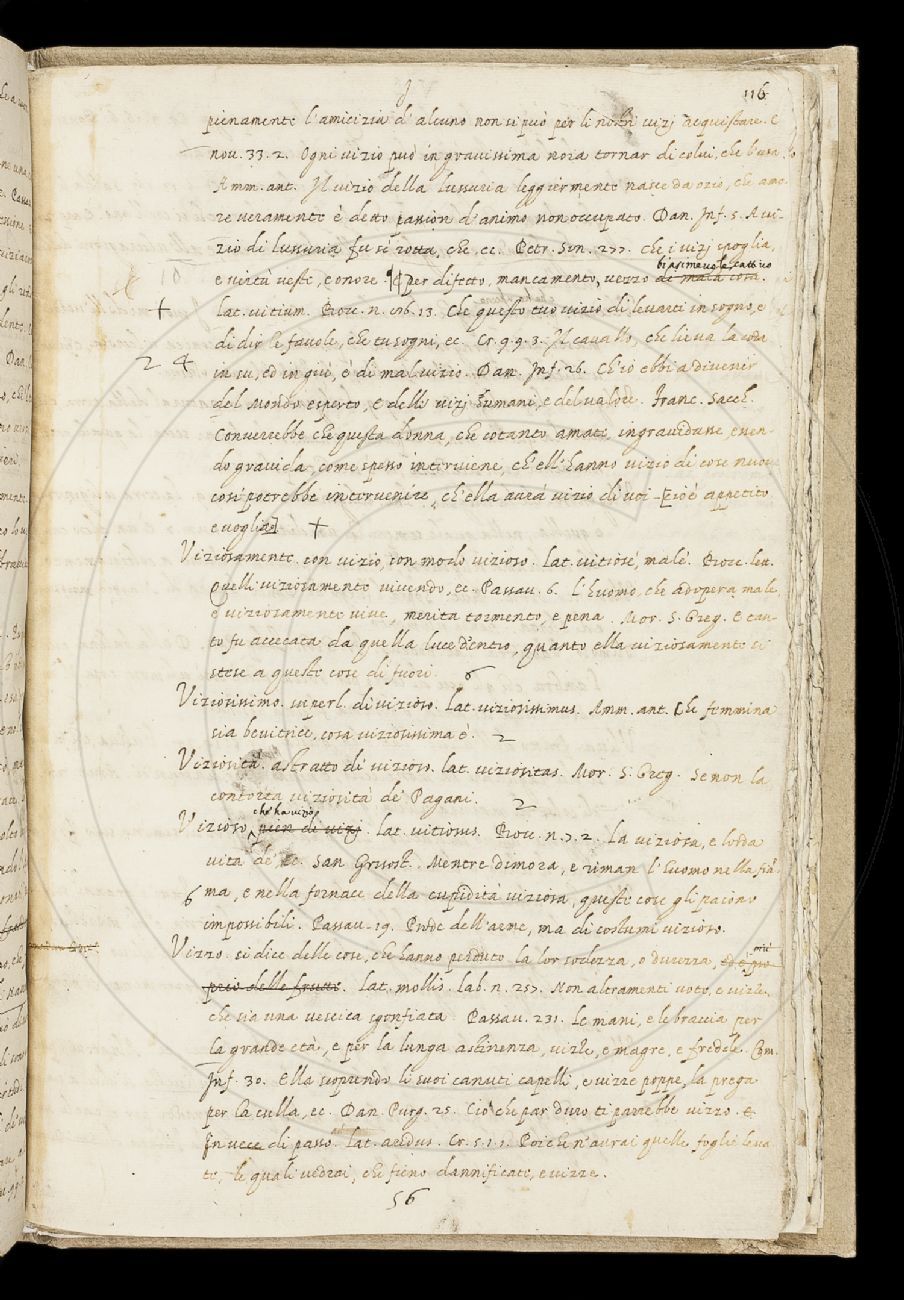 116
pienamente l'amicizia d'alcuno non si può per li nostri vizj acquistare. E
nov. 33. 2. Ogni vizio può in gravissima noia tornar di colui, che l'usa
Amm. ant. Il vizio della lussuria leggiermente nasce da ozio, che amo-
re veramente è detto passion d'animo non occupato. Dan. Inf. 5. A vi-
zio di lussuria fu sì rotta, che, ec. Petr. Son. che i vizj spoglia,
biasimevole, cattivo
e virtù veste, e onore. per difetto, mancamento, vezzo di mala cosa.
lat. vitium. Bocc. n. 13. Che questo tuo vizio di levarti in sogno, e
di dir le favole, che tu sogni, ec. Cr. 9. 9. 3. Il cavallo, che lieva la coda
2 4
in su, ed in giù, è di mal vizio. Dan. Inf. 26. Ch'io ebbi a divenir
del Mondo esperto, E delli vizj humani, e del valore. Franc. Sacch.
Converrebbe che questa donna, che cotanto amate, ingravidasse, essen-
do gravida, come spesso interviene, ch'ell'hanno vizio di cose nuove
così potrebbe intervenire, ch'ella avrà vizio di voi [cioè appetito
e voglia]
Viziosamente. con vizio, con modo vizioso. lat. vitiosè, malè. Bocc. lett.
Quelli viziosamente vivendo, ec. Passav. 6. L'huomo, che adopera male
e viziosamente vive, merita tormento, e pena. Mor. S. Greg. E tan-
to fu accecata da quella luce d'entro, quanto ella viziosamente si
stese a queste cose di fuori. 6
Viziosissimo. superl. di vizioso. lat. viziosissimus. Amm. ant. Che femmina
sia bevitrice, cosa viziosissima è. 2
Viziosità. astratto di vizioso. lat. viziositas. Mor. S. Greg. Se non la
contorta viziosità de' Pagani. 2
che ha vizio
Vizioso, pien di vizj. lat. vitiosus. Bocc. n. 7. 2. La viziosa, e lorda
vita de' ec. San Grisost. Mentre dimora, e riman l'huomo nella fiã-
6 ma, e nella fornace della cupidità viziosa, queste cose gli paiono
impossibili. Passav. 19. Prode dell'arme, ma di costumi vizioso.
Vizzo. si dice delle cose, che hanno perduto la lor sodezza, o durezza, ed è pro-
prio delle frutte. lat. mollis. lab. n. 257. Non altramenti voto, e vizzo,
che sia una vescica sgonfiata. Passav. 231. Le mani, e le braccia per
la grande età, e per la lunga astinenza, vizze, e magre, e fredde. Com.
Inf. 30. Ella scoprendo li suoi canuti capelli, e vizze poppe, la prega
per la culla, ec. Dan. Purg. 25. Ciò che par duro ti parrebbe vizzo. E
In vece di passo. lat. aridus. Cr. 5. 1. Poiche n'avrai quelle foglie leva-
te, le quali vedrai, che fieno dannificate, e vizze.
56